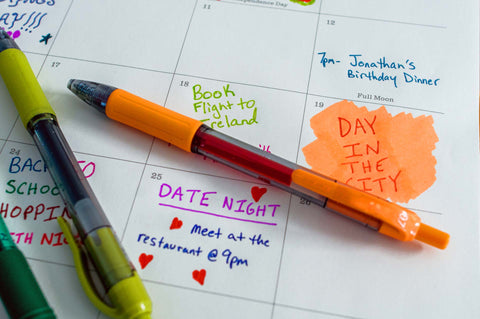 AY!!!
Independence Day
11
12
7pm- Jonathan's
Birthday Dinner
17
18
Book
Flight to
Ireland
Full Moon
19
DAY
IN
THE
CITY
24
BACK TO
SCHOO
HOPPIN
25
DATE NIGHT
Meet at the
restaurant @ 9pm
26